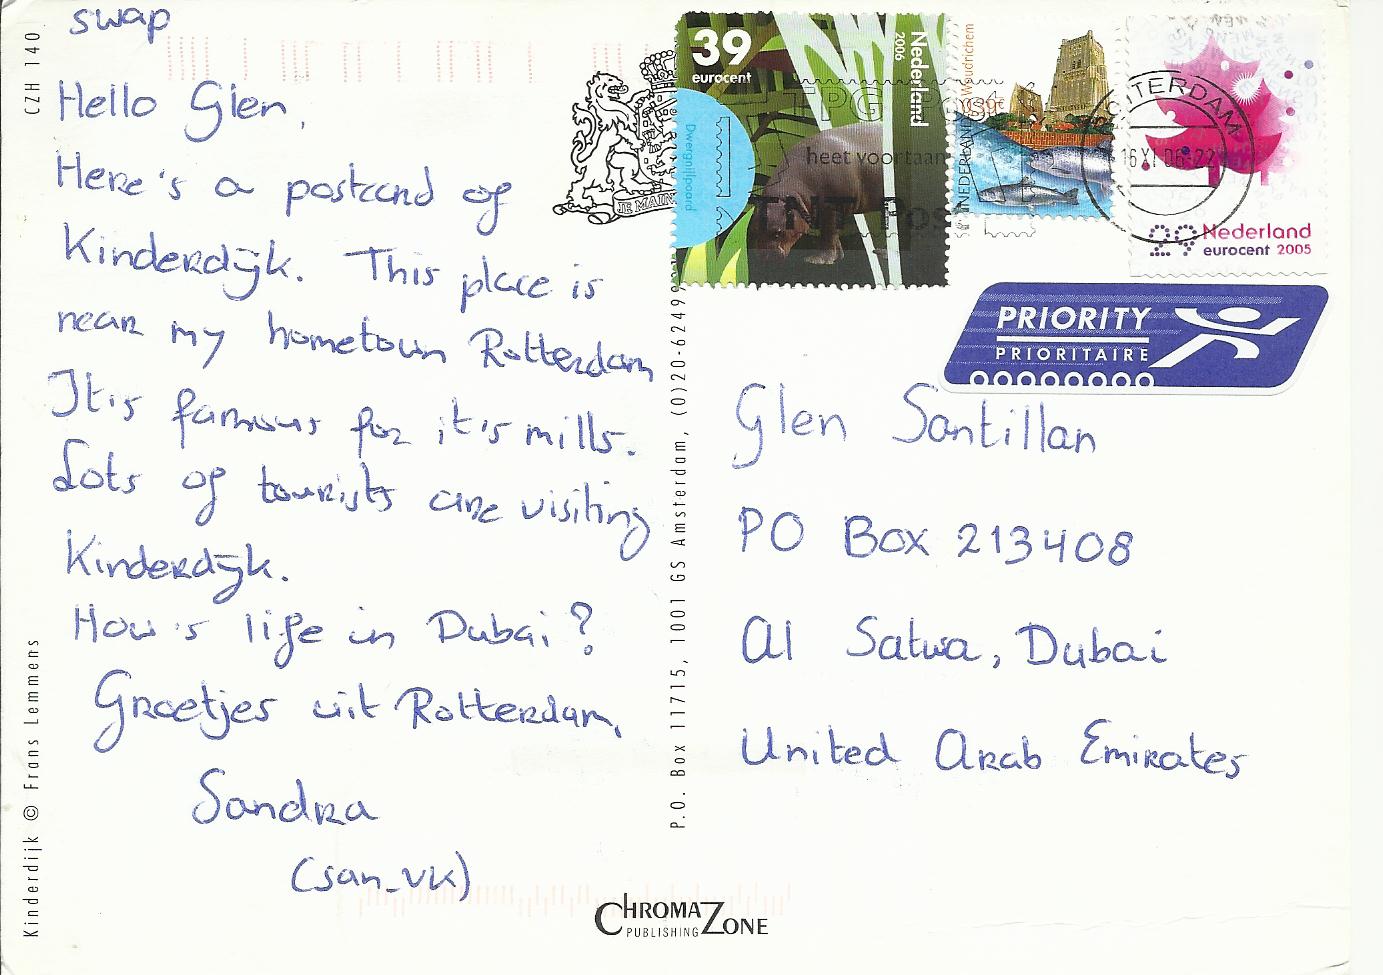 swap
Hello Glen,
Here's a postcard of
Kinderdijk. This place is
near my hometown Rotterdam
It is famous for it's mills.
Lots of tourists are visiting
Kinderdijk.
How's life in Dubai?
Groetjes uit Rotterdam,
Sandra
(san_vk)
CZH 140
Kinderdijk © Frans Lemmens
P.O. Box 11715, 1001 GS Amsterdam, (0)20-62499
CHROMAZONE
PUBLISHING
JE MAIN
39
eurocent
Nederland
2006
Dwergnijlpaard
TPG Post
heet voortaan
TNT Post
Woudrichem
0,39€
NEDERLAND
ROTTERDAM
16 XI 06-22
29 Nederland
eurocent 2005
PRIORITY
PRIORITAIRE
Glen Santillan
PO Box 213408
Al Satwa, Dubai
United Arab Emirates